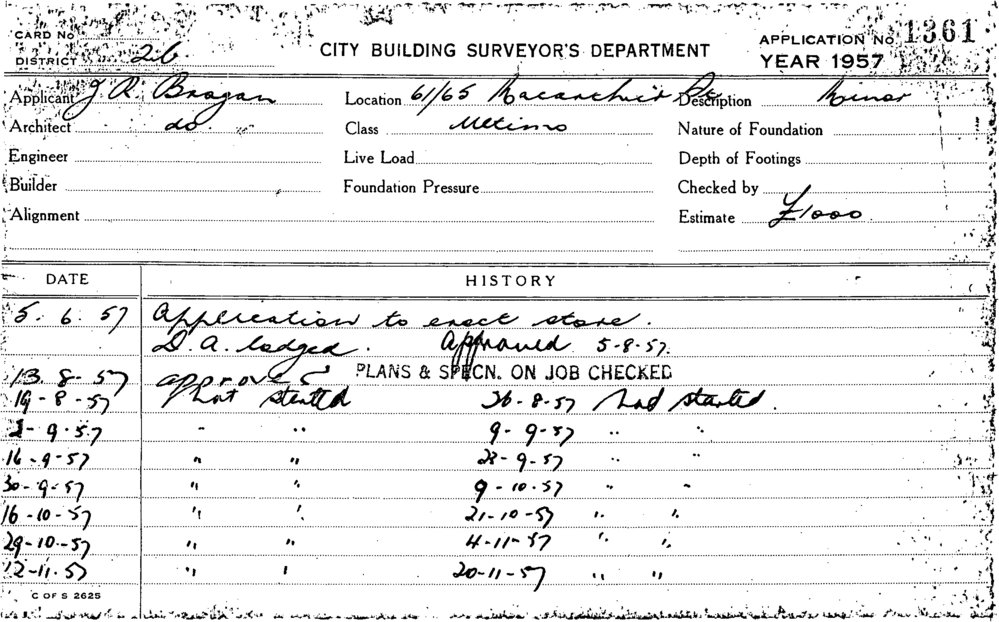 CARD No
CITY BUILDING SURVEYOR'S DEPARTMENT
APPLICATION No 1361
DISTRICT 26
YEAR 1957
Applicant J R Brogan Location 61/65 Description Minor
Architect do. Class Nature of Foundation
Engineer Live Load Depth of Footings
Builder Foundation Pressure Checked by
Alignment Estimate £1000
DATE HISTORY
5. 6. 57 Application to erect store.
D. A. lodged. Approved 5-8-57.
13. 8- 57 approved PLANS & SPECN. ON JOB CHECKED
19-8-57 Not started 26-8-57 Not started.
2-9-57 " " 9-9-57 " "
16-9-57 " " 23-9-57 " "
30-9-57 " " 9-10-57 " "
16-10-57 " " 21-10-57 " "
29-10-57 " " 4-11-57 " "
12-11-57 " " 20-11-57 " "
C OF S 2625